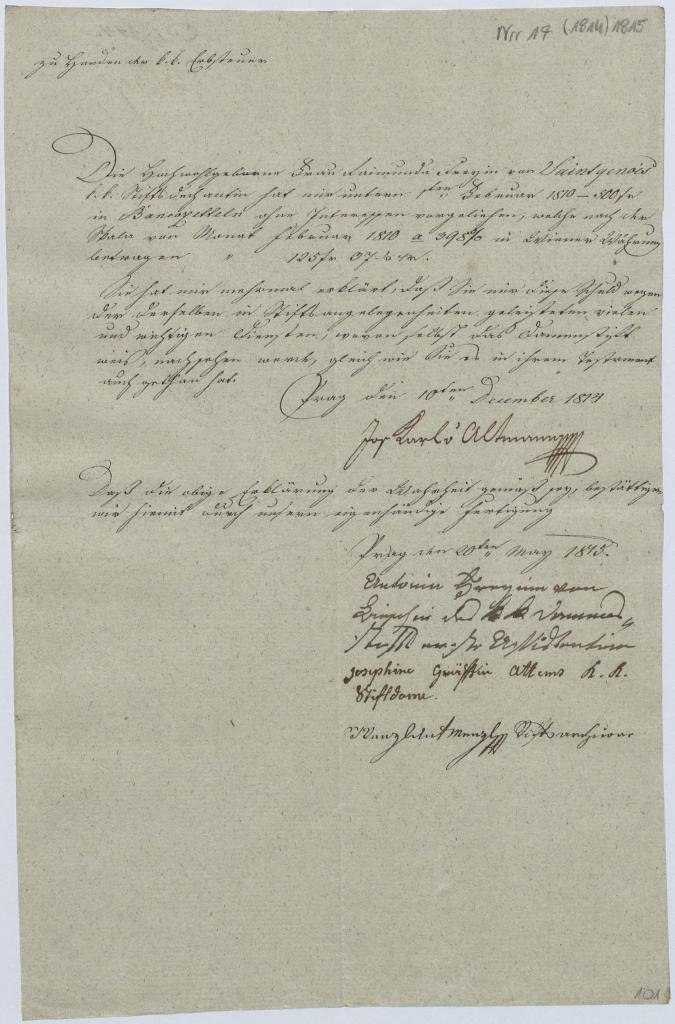 Nr 17 (1814) 1815
zu Handen der k. k. Erbsteuer
Die Hochwohlgeborne Frau Raimunda Freyin von Saintgenois
k. k. Stiftsdechantin hat mir unterm 1ten Februar 1810 – 500 fr
in Bancozetteln ohne Interessen vorgeliehen, welche nach der
Skala von Monat Februar 1810 a 398% in Wiener Währung
betragen " 125 fr 37 xr.
Sie hat mir mehrmal erklärt, daß Sie mir diese Schuld wegen
der derselben in Stiftsangelegenheiten geleisteten vielen
und wichtigen Diensten, wovon selbst das Damenstift
weis, nachsehen werde, gleich wie Sie es in ihrem Testament
auch gethan hat.
Prag den 10ten December 1814
Jos Karl Altmann
Daß die obige Erklärung der Wahrheit gemäß sey, bestättigen
wir hiemit durch unsere eigenhändige Fertigung
Prag den 20ten May 1815.
Antonia Freyinn von
des k k Dammen
stifft erste Assistentin
Josephine Gräffin Attems K. K.
Stiftdame.
Wenzl Stiftsarchivar
101